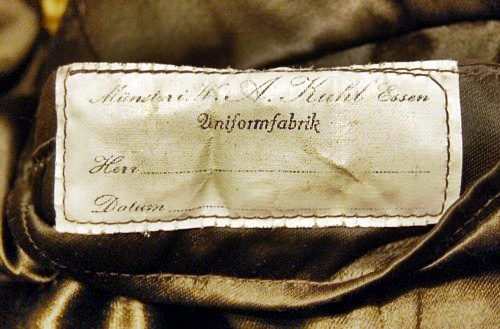 Münster i. W. A. Kuhl Essen
Uniformfabrik
Herr
Datum